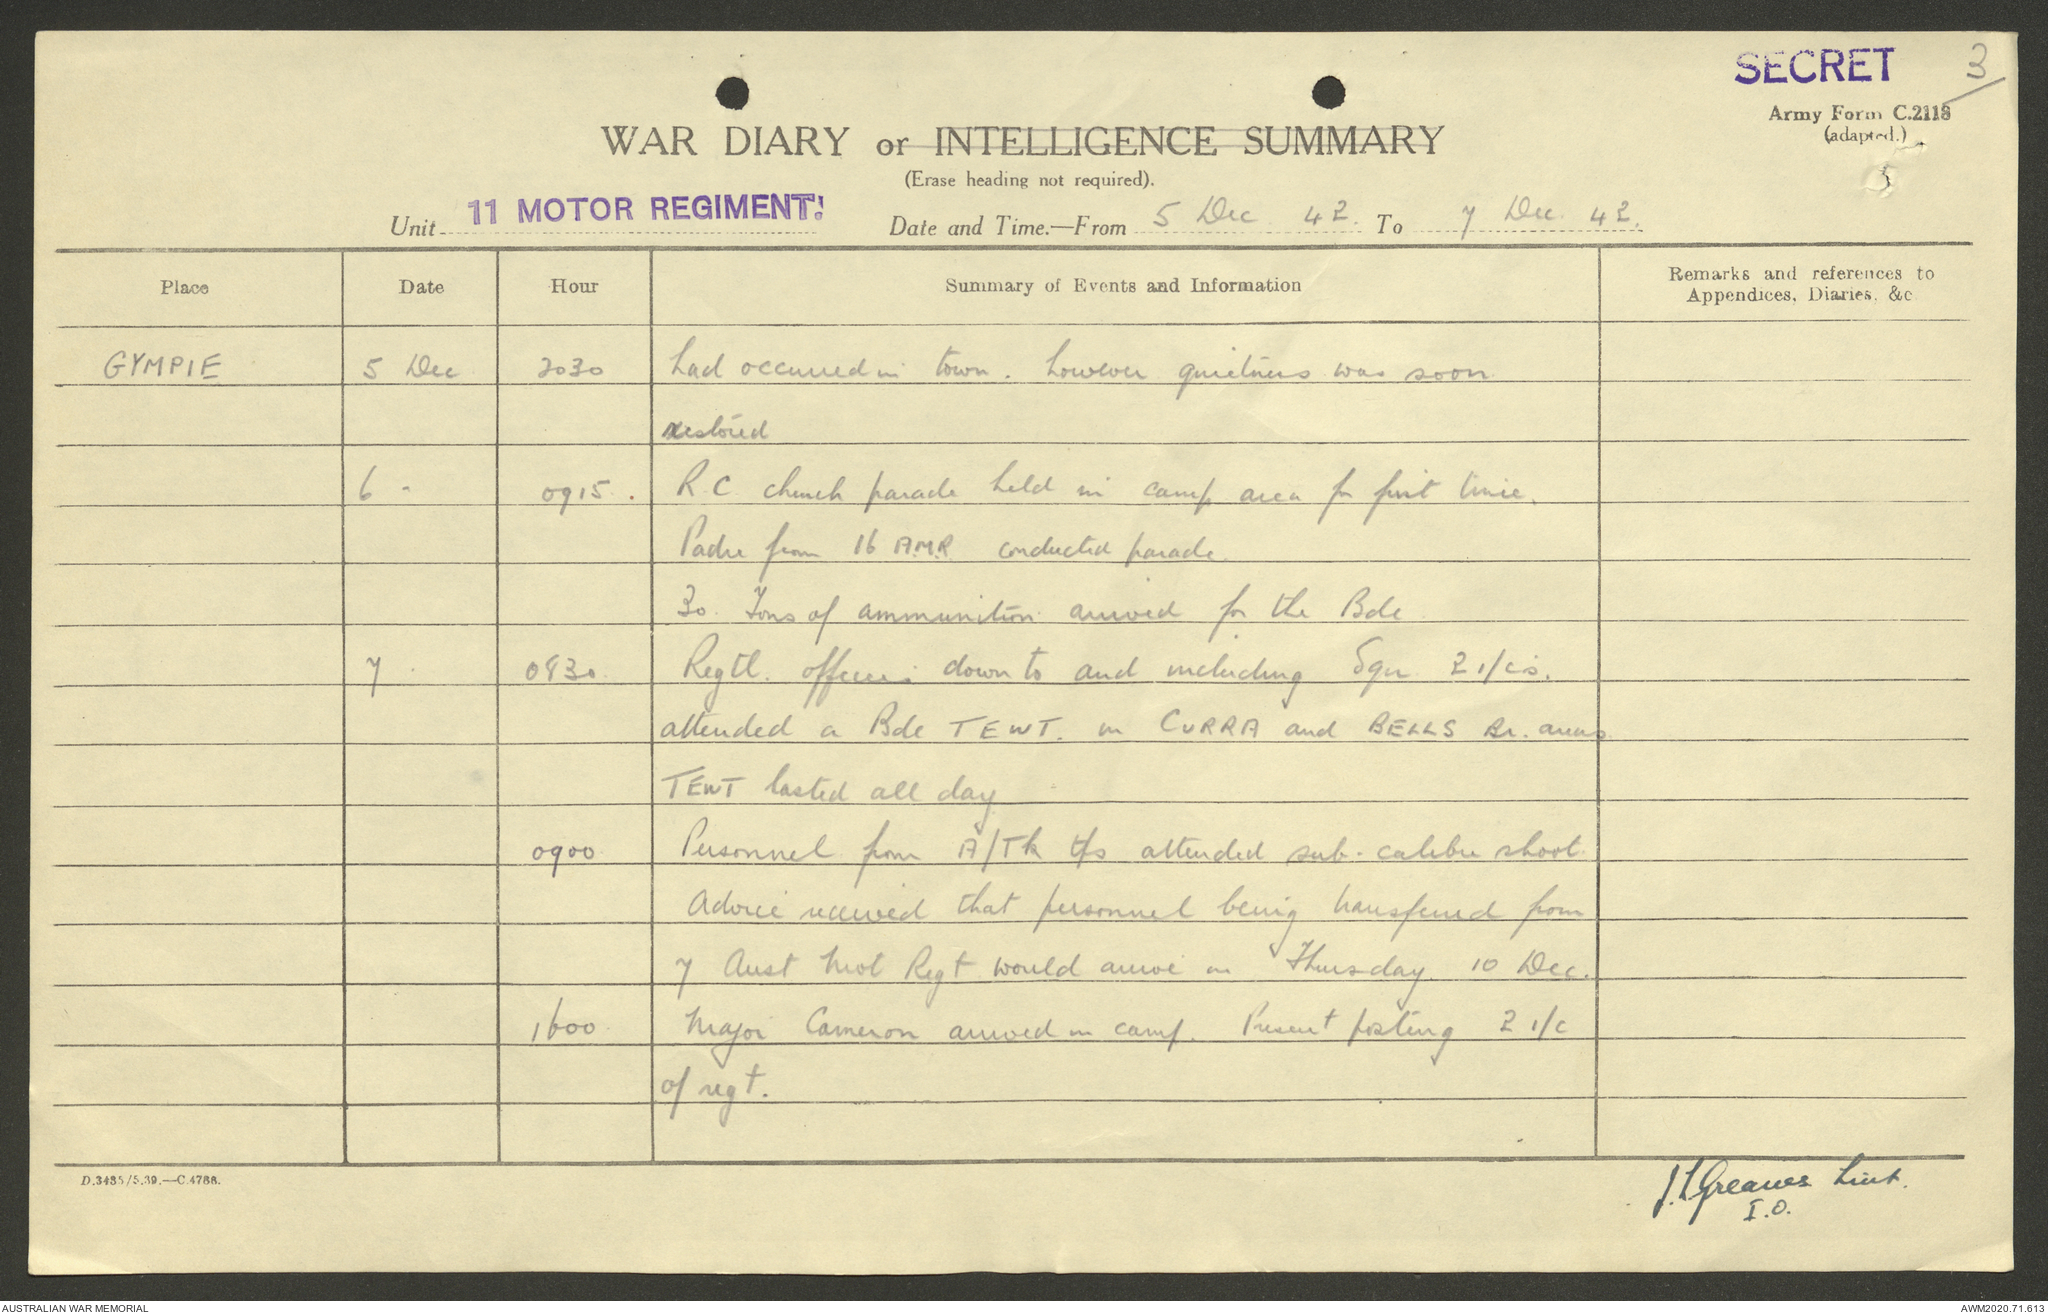 SECRET 3
Army Form C.2118
(adapted.)
WAR DIARY or INTELLIGENCE SUMMARY
(Erase heading not required).
Unit 11 MOTOR REGIMENT. Date and Time.—From 5 Dec 42. To 7 Dec. 42.
Place Date Hour Summary of Events and Information Remarks and references to
Appendices, Diaries, &c
GYMPIE 5 Dec 2030 had occurred in town. however quietness was soon
restored
6 - 0915. R.C church parade held in camp area for first time.
Padre from 16 A.M.R. conducted parade.
30. Tons of ammunition arrived for the Bde
7 0830 Regtl. officers down to and including Sqn 2 i/cs.
attended a Bde TEWT. in CURRA and BELLS Br. areas
TEWT lasted all day
0900 Personnel from A/Tk tps attended sub-calibre shoot.
Advice received that personnel being transferred from
7 Aust Mot Regt would arrive on Thursday 10 Dec.
1600 Major Cameron arrived in camp. Present posting 2 i/c
of regt.
D.3485/5.39.—C.4788.
Greaves Lieut.
I.O.
AUSTRALIAN WAR MEMORIAL AWM2020.71.613